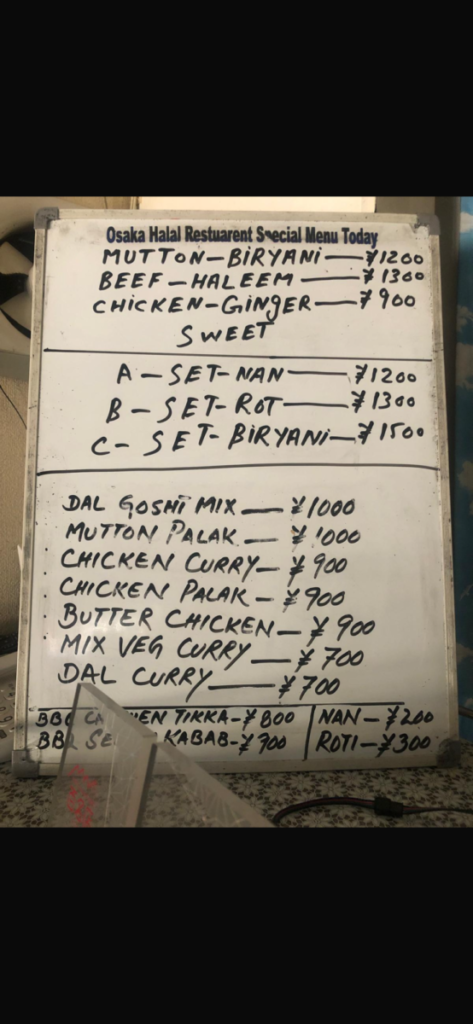 Osaka Halal Restuarent Special Menu Today
MUTTON-BIRYANI-¥1200
BEEF-HALEEM-¥1300
CHICKEN-GINGER-¥900
SWEET
A-SET-NAN-¥1200
B-SET-ROT-¥1300
C-SET-BIRYANI-¥1500
DAL GOSHT MIX-¥1000
MUTTON PALAK-¥1000
CHICKEN CURRY-¥900
CHICKEN PALAK-¥900
BUTTER CHICKEN-¥900
MIX VEG CURRY-¥700
DAL CURRY-¥700
BBQ TIKKA-¥800 NAN-¥200
BBQ KABAB-¥700 ROTI-¥300